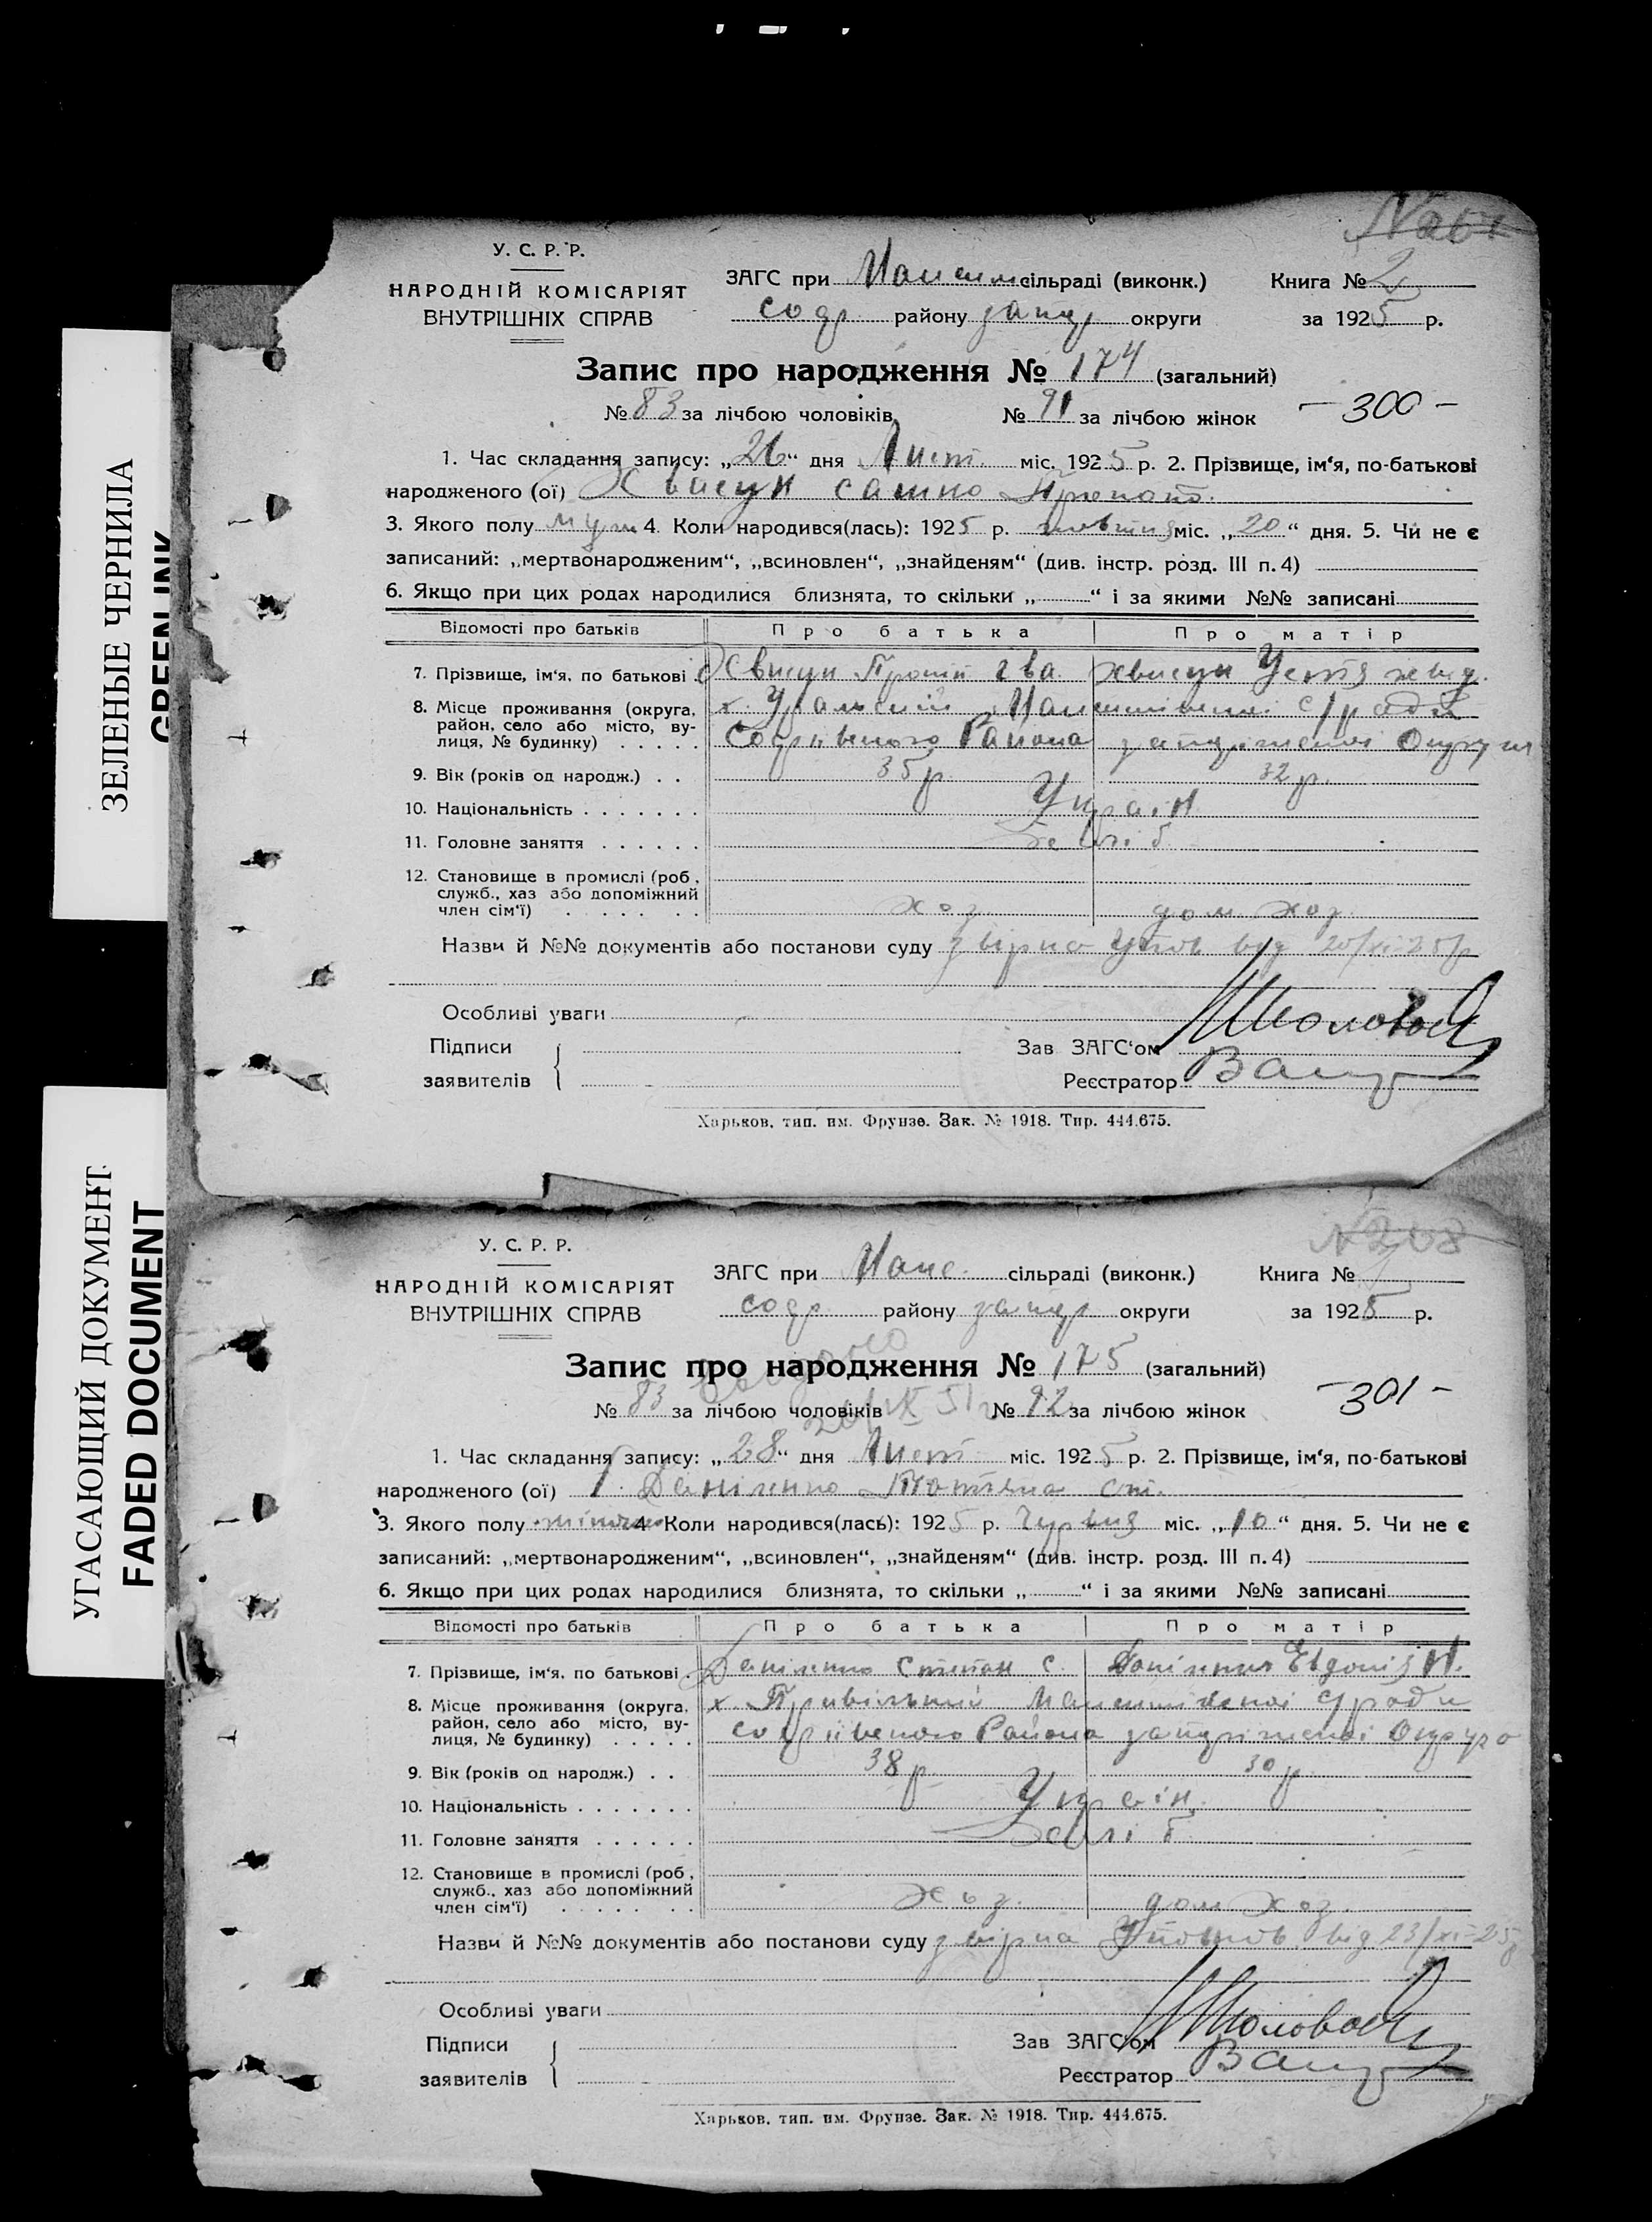 ЗЕЛЕНЫЕ ЧЕРНИЛА
GREEN INK
УГАСАЮЩИЙ ДОКУМЕНТ
FADED DOCUMENT
У. С. Р. Р.
НАРОДНІЙ КОМІСАРІЯТ
ВНУТРІШНІХ СПРАВ
ЗАГС при сільраді (виконк.)
Книга № 2
содр району запор округи
за 1925 р.
Запис про народження № 174 (загальний)
№ 83 за лічбою чоловіків № 91 за лічбою жінок
- 300 -
1. Час складання запису: „26“ дня Лист. міс. 1925 р. 2. Прізвище, ім‘я, по-батькові
народженого (ої) Хвасун Сашко
3. Якого полу муж 4. Коли народився(лась): 1925 р. жовтня міс. „20“ дня. 5. Чи не є
записаний: „мертвонародженим“, „всиновлен“, „знайденям“ (див. інстр. розд. III п. 4)
6. Якщо при цих родах народилися близнята, то скільки „ “ і за якими №№ записані
Відомості про батьків Про батька Про матір
7. Прізвище, ім‘я, по батькові Хвисун Хвисун Устя
8. Місце проживання (округа, район, село або місто, вулиця, № будинку) х. Уральский
Района Округи
9. Вік (років од народж.) 35 р. 32 р.
10. Національність Україн
11. Головне заняття Хліб
12. Становище в промислі (роб., служб., хаз або допоміжний член сім‘ї) хоз. дом. хоз.
Назви й №№ документів або постанови суду від 20/XI-25 р
Особливі уваги
Підписи заявителів
Зав ЗАГС‘ом
Реєстратор
Харьков, тип. им. Фрунзе. Зак. № 1918. Тир. 444.675.
У. С. Р. Р.
НАРОДНІЙ КОМІСАРІЯТ
ВНУТРІШНІХ СПРАВ
ЗАГС при сільраді (виконк.)
Книга №
содр. району запор округи
за 1925 р.
Запис про народження № 175 (загальний)
№ 83 за лічбою чоловіків № 92 за лічбою жінок
- 301 -
1. Час складання запису: „28“ дня Лист міс. 1925 р. 2. Прізвище, ім‘я, по-батькові
народженого (ої) Даніленко Тотяна Ст.
3. Якого полу 4. Коли народився(лась): 1925 р. міс. „10“ дня. 5. Чи не є
записаний: „мертвонародженим“, „всиновлен“, „знайденям“ (див. інстр. розд. III п. 4)
6. Якщо при цих родах народилися близнята, то скільки „ “ і за якими №№ записані
Відомості про батьків Про батька Про матір
7. Прізвище, ім‘я, по батькові Даніленко Степан С. Евдокія
8. Місце проживання (округа, район, село або місто, вулиця, № будинку) х.
Района
9. Вік (років од народж.) 38 р. 30 р.
10. Національність Україн.
11. Головне заняття Хліб
12. Становище в промислі (роб., служб., хаз або допоміжний член сім‘ї) хоз. дом хоз.
Назви й №№ документів або постанови суду від 23/XI-25
Особливі уваги
Підписи заявителів
Зав ЗАГС‘ом
Реєстратор
Харьков, тип. им. Фрунзе. Зак. № 1918. Тир. 444.675.